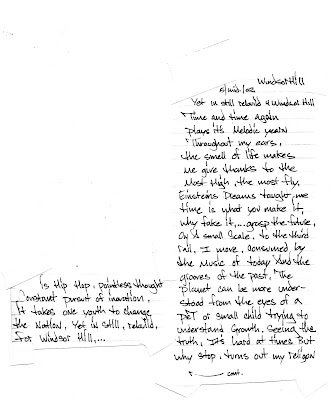 Windsor Hill
5/mid/02
Yet in still rebuild 4 Windsor Hill
Time and time again
Plays its Melodic years
Throughout my ears,
the smell of life makes
me give thanks to the
Most High, the most fly,
Einsteins Dreams taught me
time is what you make it,
why fake it,...grasp the future,
On a small scale, to the third
rail, I move, consumed by
the Music of today And the
grooves of the past, The
Planet can be more under-
stood from the eyes of a
pet or small child trying to
understand Growth, Seeing the
truth, It's hard at times But
why stop, turns out my religion
cont.
Is Hip Hop, pointless thought
Constant pursuit of
It takes one youth to change
the Nation, Yet in still, rebuild,
For Windsor Hill,...